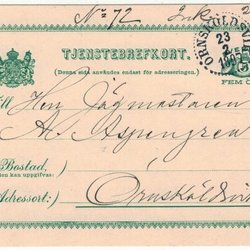 No 72
TJENSTEBREFKORT.
(Denna sida användes endast för adresseringen.)
FEM
ÖRNSKÖLDSVIK
23
Herr Jägmästaren
A. Aspengren
Bostad,
(den kan uppgifvas:)
Adressort:) Örnsköldsvik